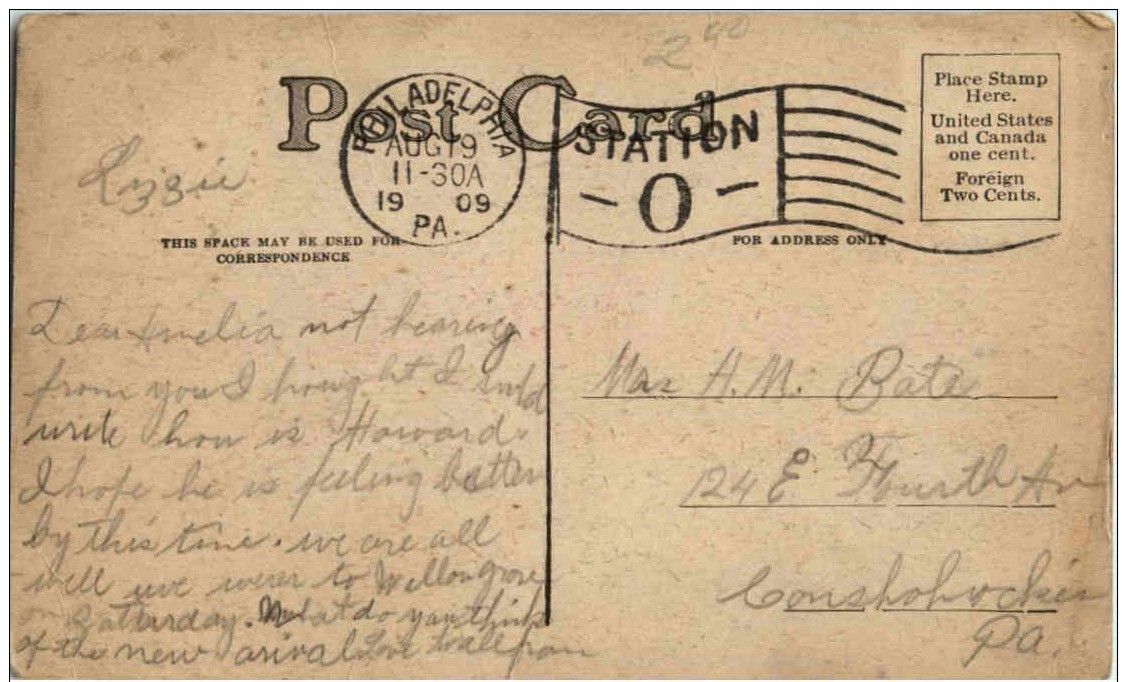 2 40
Post Card
PHILADELPHIA
AUG 19
11-30A
19 09
PA.
STATION
- O -
Place Stamp
Here.
United States
and Canada
one cent.
Foreign
Two Cents.
Lizzie
THIS SPACE MAY BE USED FOR
CORRESPONDENCE
FOR ADDRESS ONLY
Dear Amelia not hearing
from you I I
write how is Howard.
I hope he is feeling better
by this time. we are all
well we were to Willow grove
on Satturday. What do you think
of the new arival Love to all from
Mrs H. M. Bate
124 E. Fourth Av
Conshohocken
Pa.